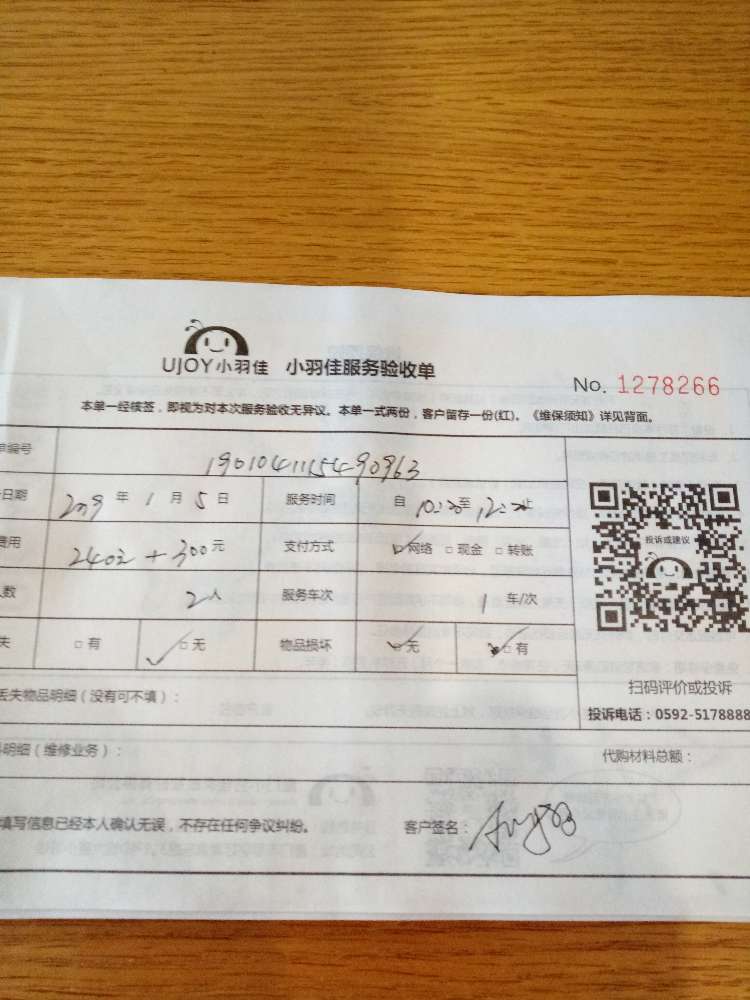 UJOY小羽佳 小羽佳服务验收单
No. 1278266
本单一经核签，即视为对本次服务验收无异议。本单一式两份，客户留存一份(红)。《维保须知》详见背面。
单编号 1901041115490963
日期 2019 年 1 月 5 日 服务时间 自 至 止
费用 元 支付方式 ☑网络 □现金 □转账
人数 2人 服务车次 1 车/次
失 □有 ☑无 物品损坏 无 有
投诉或建议
扫码评价或投诉
投诉电话：0592-5178888
丢失物品明细（没有可不填）：
明细（维修业务）：
代购材料总额：
填写信息已经本人确认无误，不存在任何争议纠纷。 客户签名：